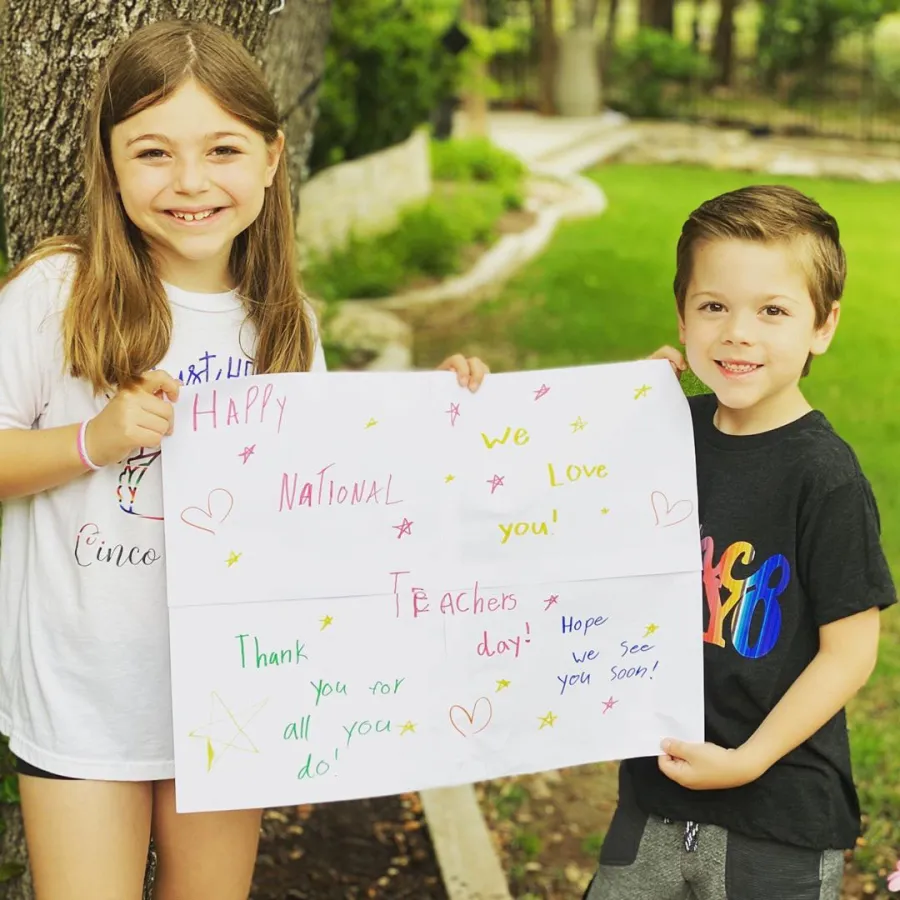 HAPPy
NATIONAL
TEAchers
day!
We
Love
you!
Thank
you for
all you
do!
Hope
we see
you soon!
Cinco